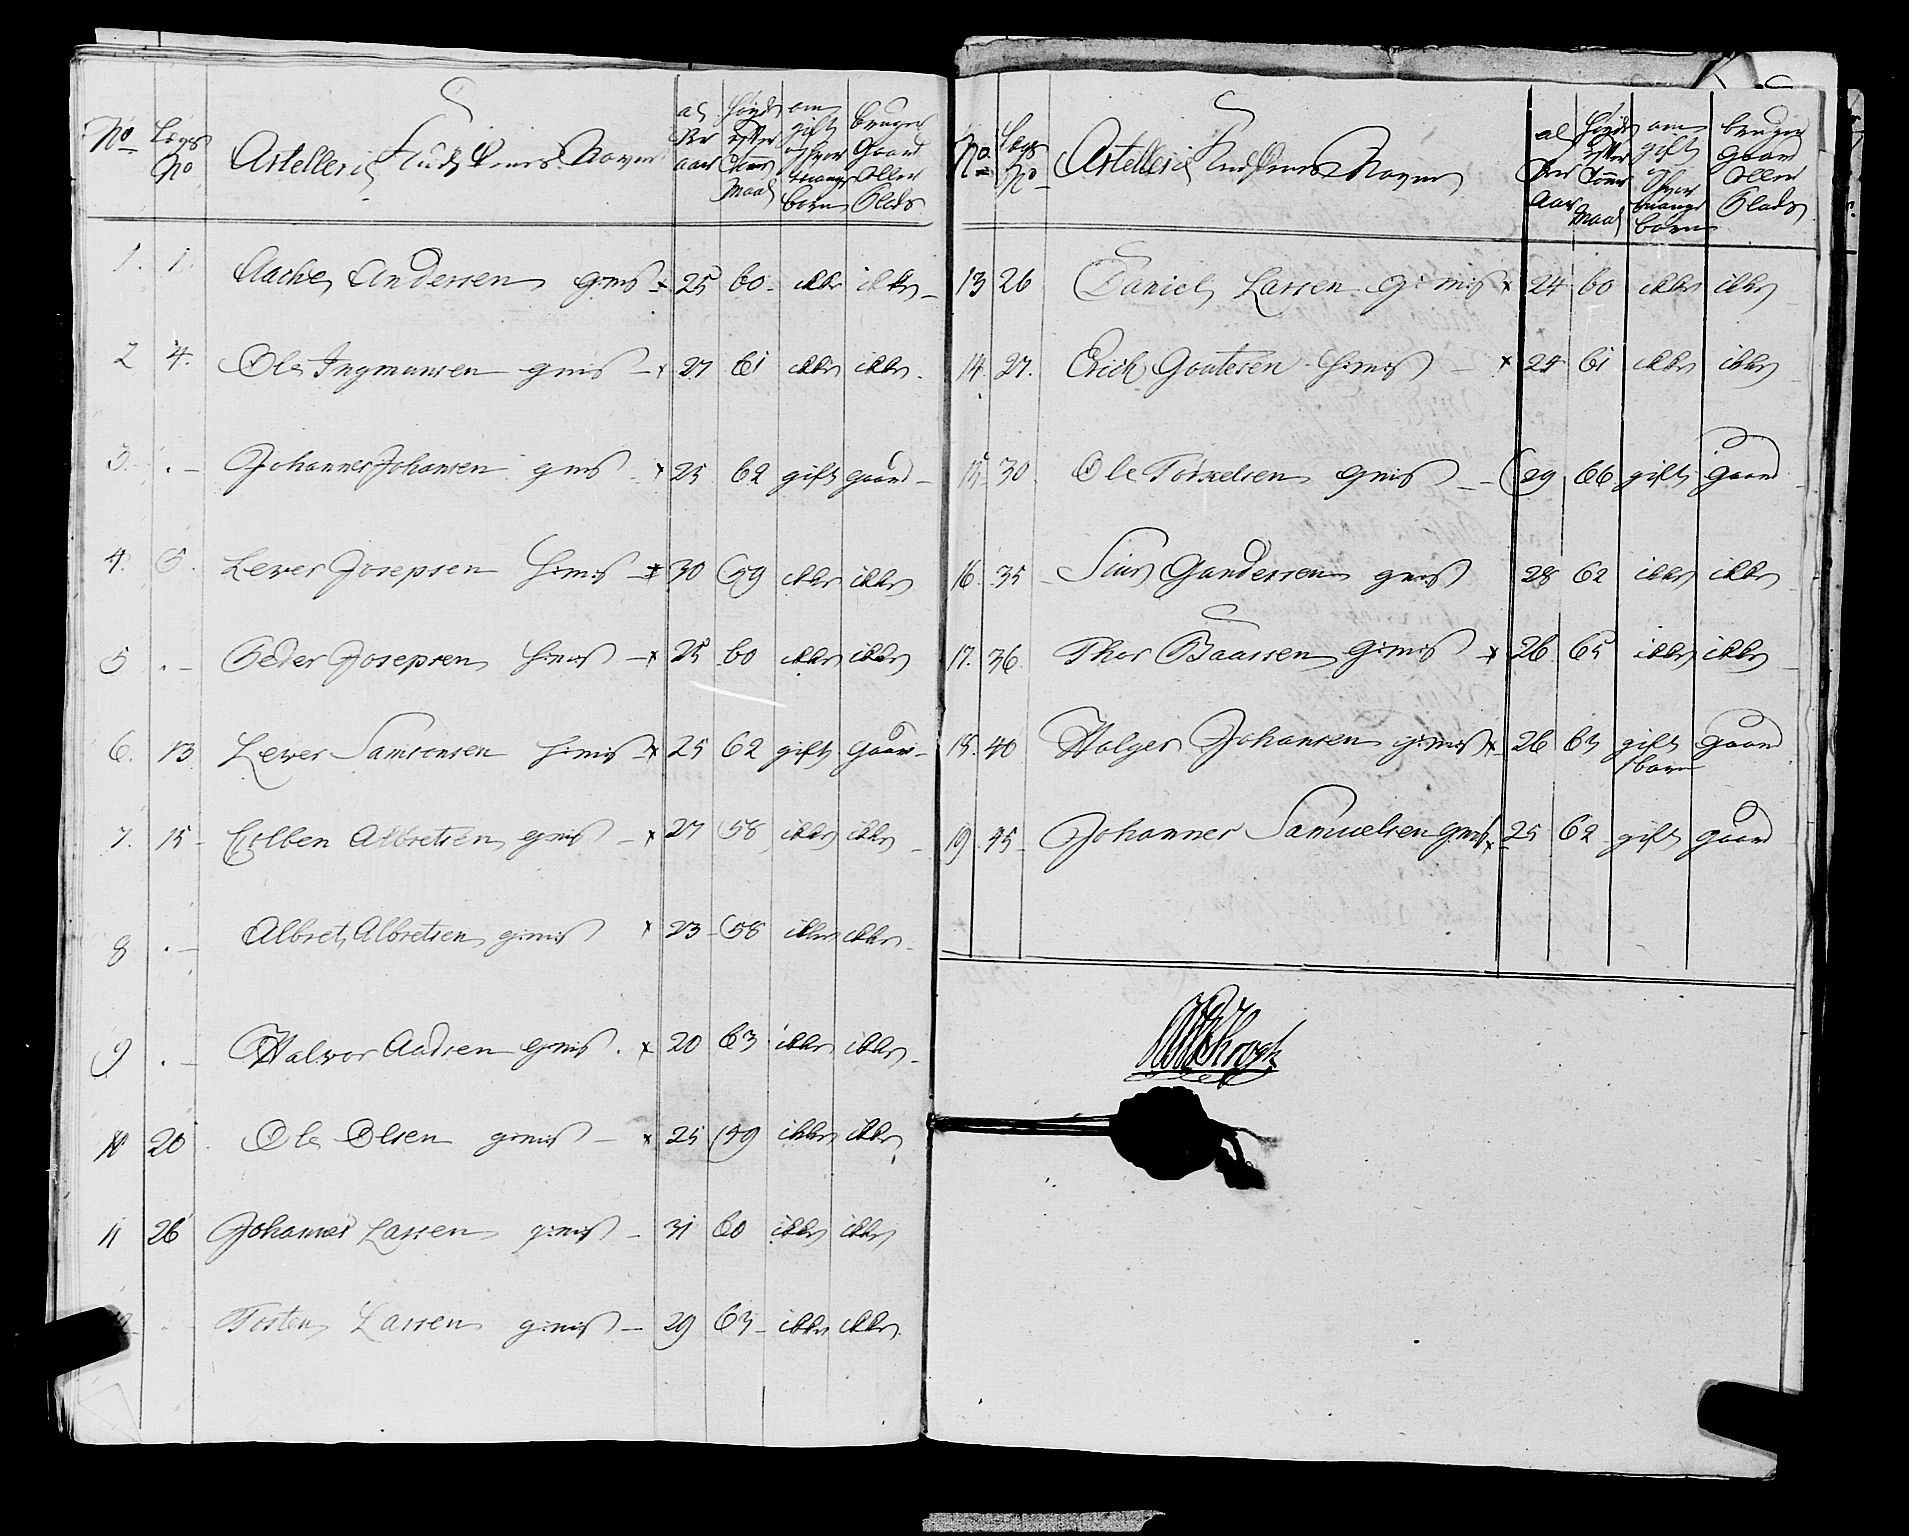 No Lægs No Artelleri Kudskenes Navne alder aar høyde efter Tomer Maal om gift og hvor mange børn bruger Gaard eller Plads
1. 1. Aache Andersen gmiß x 25 60 ikke ikke
2 4. Ole Ingmansen gmiß x 27 61 ikke ikke
3. . Johannes Johansen gmiß x 25 62 gift gaard
4. 5. Lever Josepsen h:miß x 30 59 ikke ikke
5 . Peder Josepsen h:miß x 25 60 ikke ikke
6. 13 Lever Samsonsen h:miß x 25 62 gift gaard
7. 15 Colben Albretsen gmiß x 27 58 ikke ikke
8 . Albret Albretsen g:miß x 23 58 ikke ikke
9 . Halvor Aadsen gmiß x 20 63 ikke ikke
10 20 Ole Olsen g:miß x 25 59 ikke ikke
11 26 Johannes Larsen g:miß 31 60 ikke ikke
Tosten Larsen g:miß 29 63 ikke ikke
No Lægs No Artelleri Kudskenes Navne alder Aar høyde efter Tomer Maal om gift og hvor mange børn bruger gaard eller Plads
13 26 Daniel Larsen g:miß x 24 60 ikke ikke
14. 27. Erich Goutesen h:miß x 24 61 ikke ikke
15 30 Ole Torkelsen gmiß 29 66 gift gaard
16. 35 Siur Gundersen gmiß 28 62 ikke ikke
17. 36 Thor Baassen g:miß x 26 65 ikke ikke
18. 40 Holger Johansen g:miß x 26 gift gaard
1 barn
19. 45 Johannes Samuelsen gmiß x 25 62 gift gaard